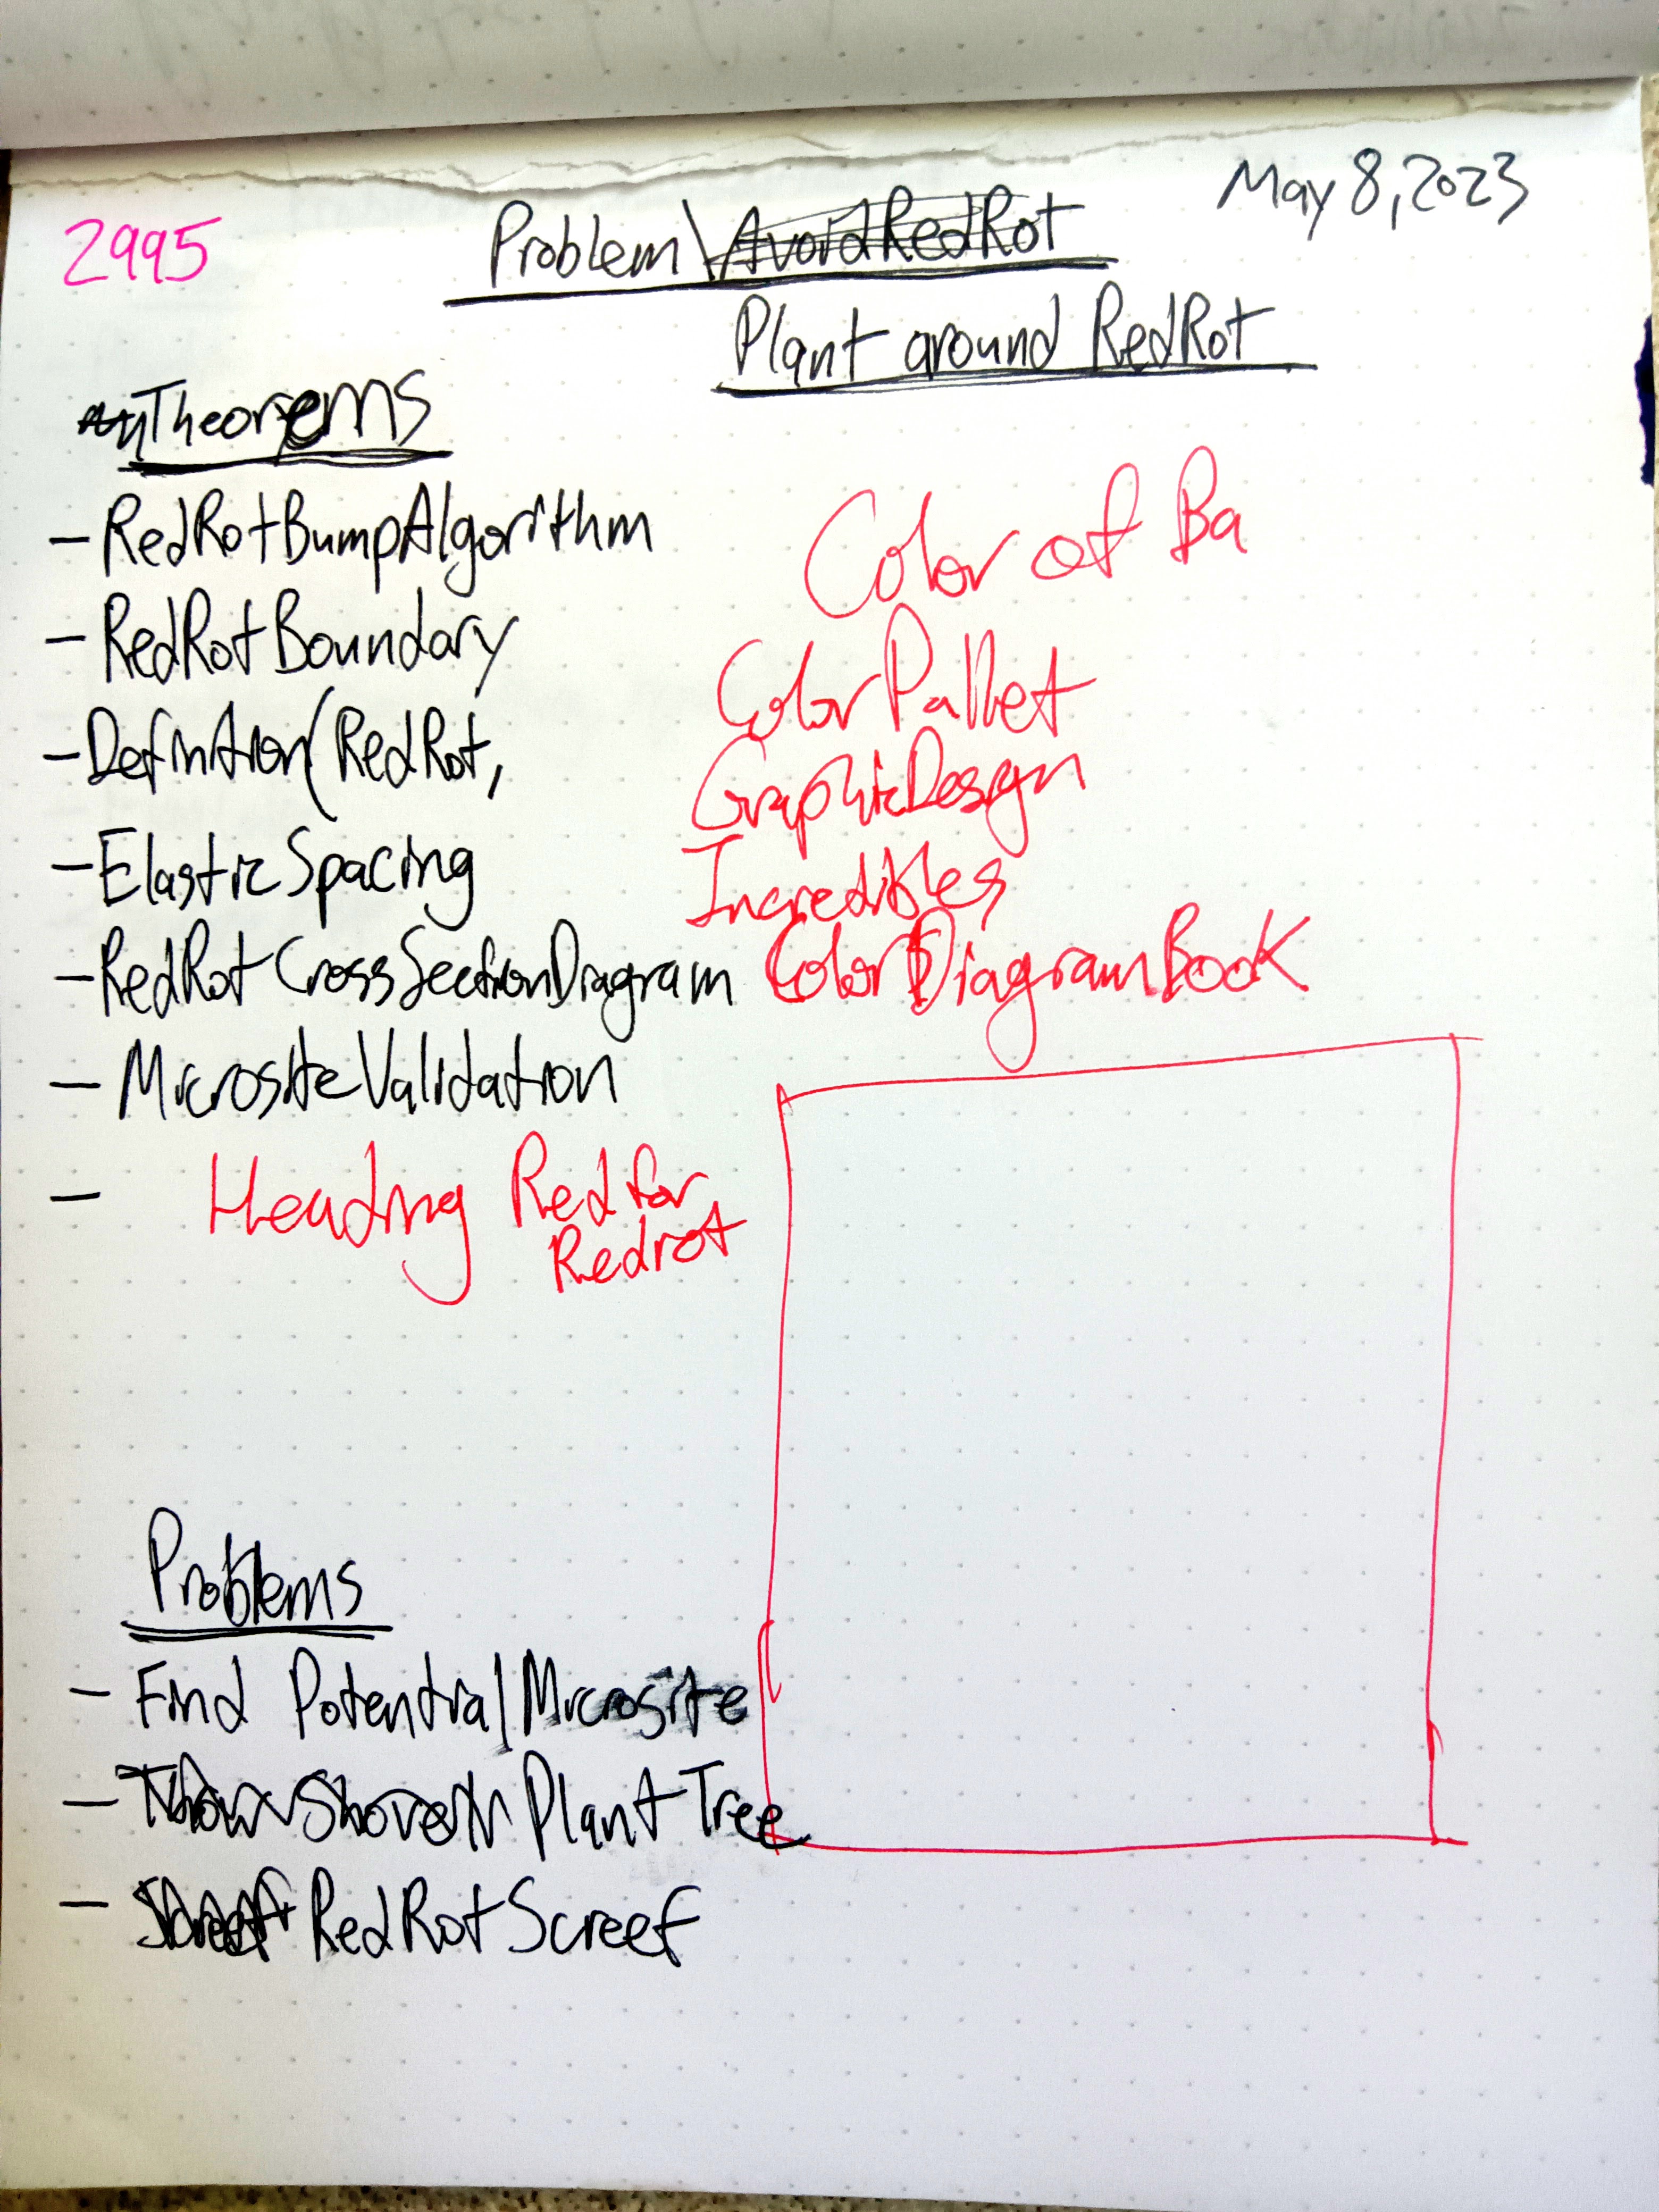 2995
May 8, 2023
Problem\AvoidRedRot
Plant around RedRot
Theorems
- RedRotBumpAlgorithm
- RedRotBoundary
- Definition(RedRot,
- ElasticSpacing
- RedRotCrossSectionDiagram
- MicrositeValidation
- Heading Red for
Redrot
Color of Ba
ColorPallet
GraphicDesign
Incredibles
ColorDiagramBook
Problems
- Find PotentialMicrosite
- PlantTree
- RedRotScreef